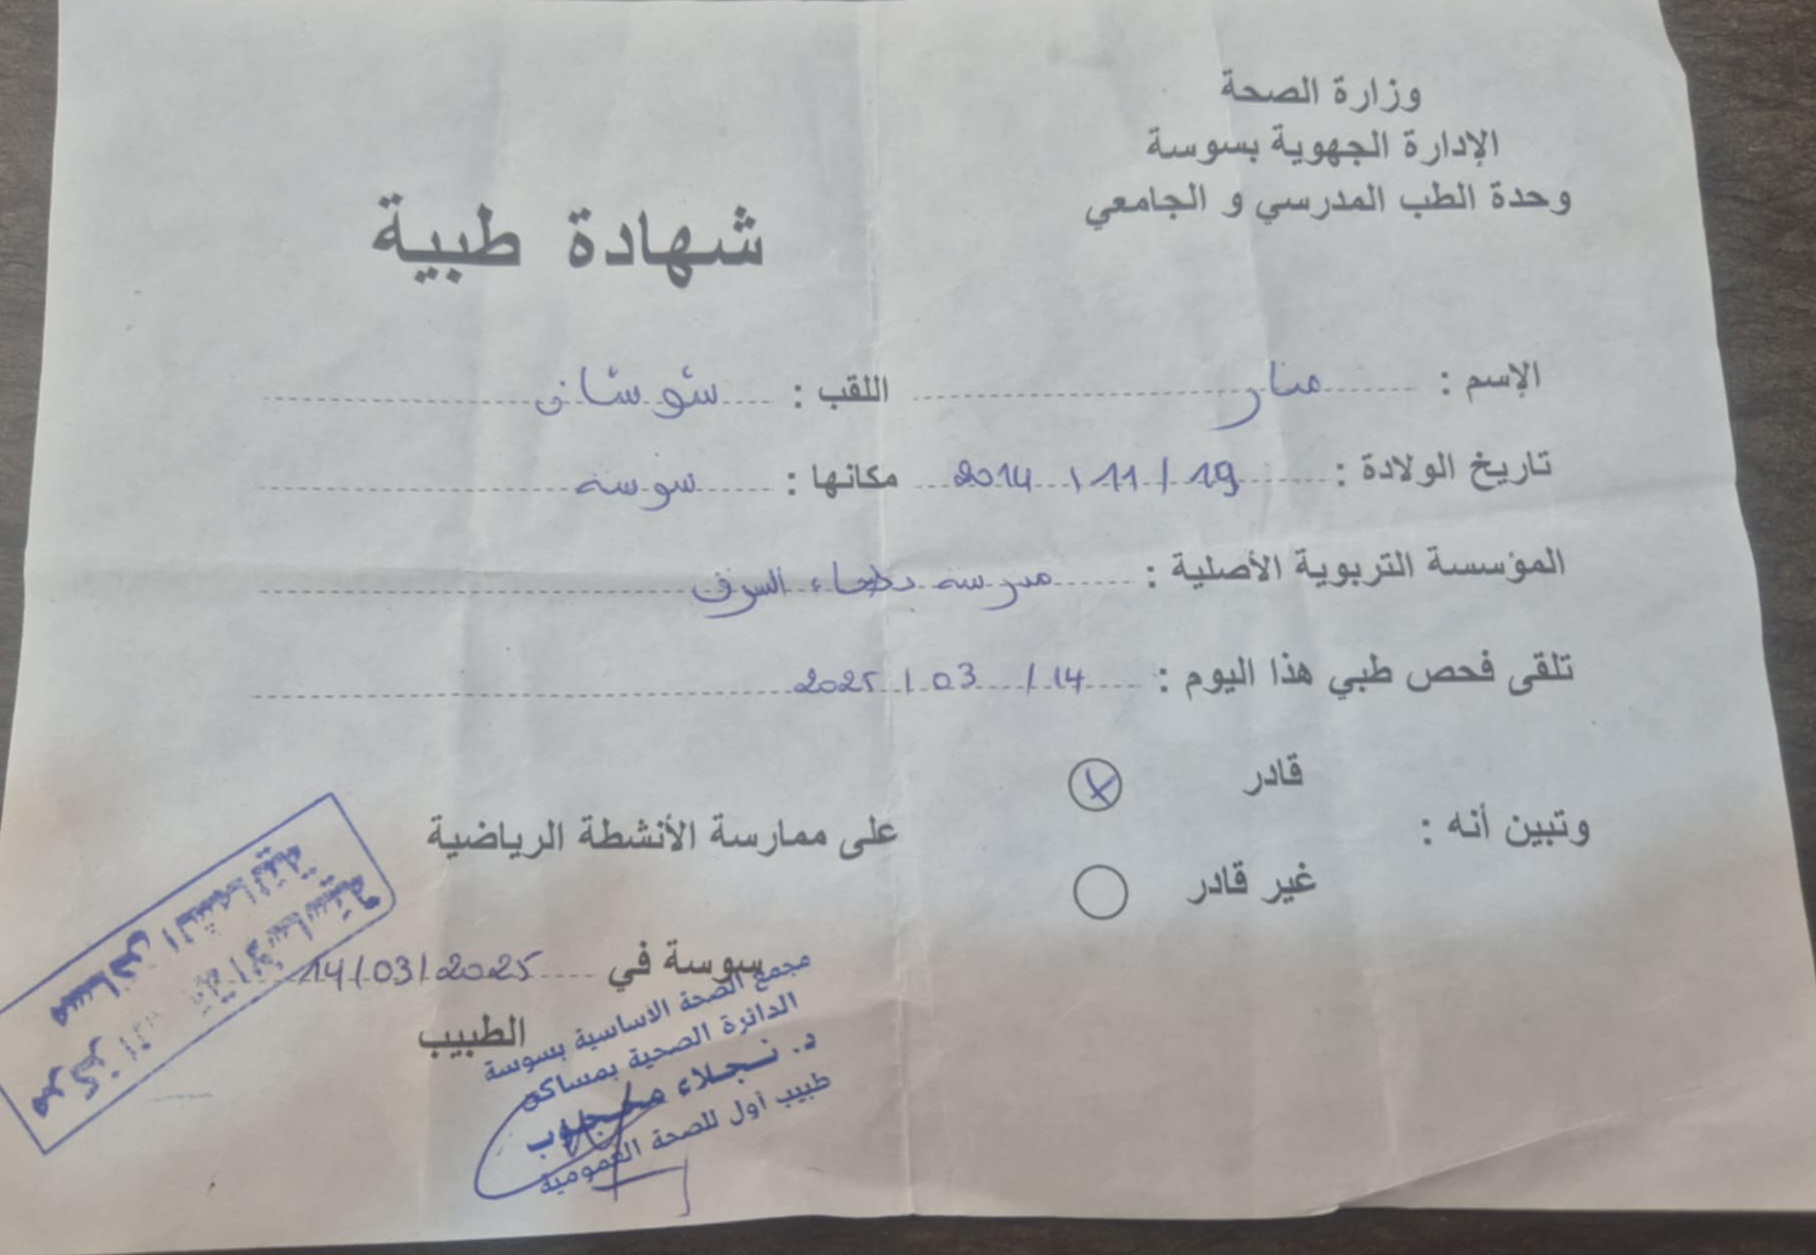 وزارة الصحة
الإدارة الجهوية بسوسة
وحدة الطب المدرسي و الجامعي
شهادة طبية
الإسم : منار اللقب : شوشان
تاريخ الولادة : 19 / 11 / 2014 مكانها : سوسه
المؤسسة التربوية الأصلية : مدرسه بطحاء السوق
تلقى فحص طبي هذا اليوم : 14 / 03 / 2025
قادر
وتبين أنه : على ممارسة الأنشطة الرياضية
غير قادر
سوسة في 14/03/2025
الطبيب
مجمع الصحة الاساسية بسوسة
الدائرة الصحية بمساكن
د. نجلاء محجوب
طبيب أول للصحة العمومية
مركز الاساسية
مساكن الشمالية